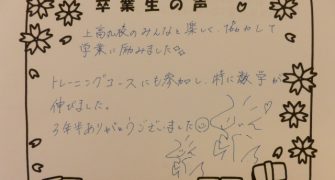 卒業生の声
上高丸校のみんなと楽しく、協力して
学業に励みました
トレーニングコースにも参加し、特に数学が
伸びました。
3年半ありがとうございました